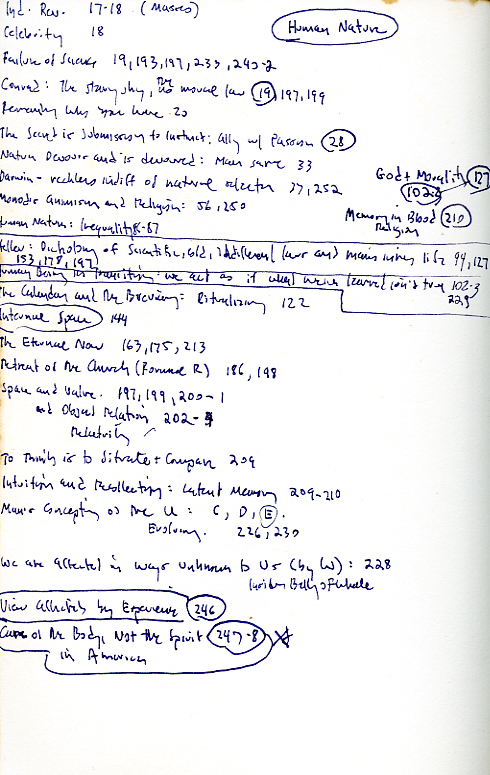 Ind. Rev. 17-18 (Masses)
Human Nature
Celebrity 18
Failure of Science 19, 193, 197, 233, 240-2
Conrad: The starry sky, the no moral law 19, 197, 199
Remaining Why you here 20
The Secret is Submission to Instinct: Ally w/ Passion 28
Nature Devours and is devoured: Man same 33
God + Morality 127
Darwin - reckless indiff of natural selection 37, 252
102-3
Monodic Animism and Religion: 56, 250
Memory in Blood 210
Religion
Human Nature: Inequality 86-87
Dichotomy of Scientific, old, indifferent law and mans inner life 94, 127
153, 178, 197
Human Being in Transition: we act as if what we've learned isn't true 102-3
229
The Calendar and the Breviary: Ritualizing 122
Internal Space 144
The Eternal Now 163, 175, 213
Retreat of the Church (Formal R) 186, 198
Space and Value. 197, 199, 200-1
and Object Relation 202-
Relativity
To Think is to Situate + Compare 209
Intuition and Recollecting: Latent Memory 209-210
Man's Conception of the U: C, D, E
Evolving. 226, 230
We are affected in ways unknown to Us (by W): 228
View Affected by Experience 246
Care of the Body, Not the Spirit 247-8
in America